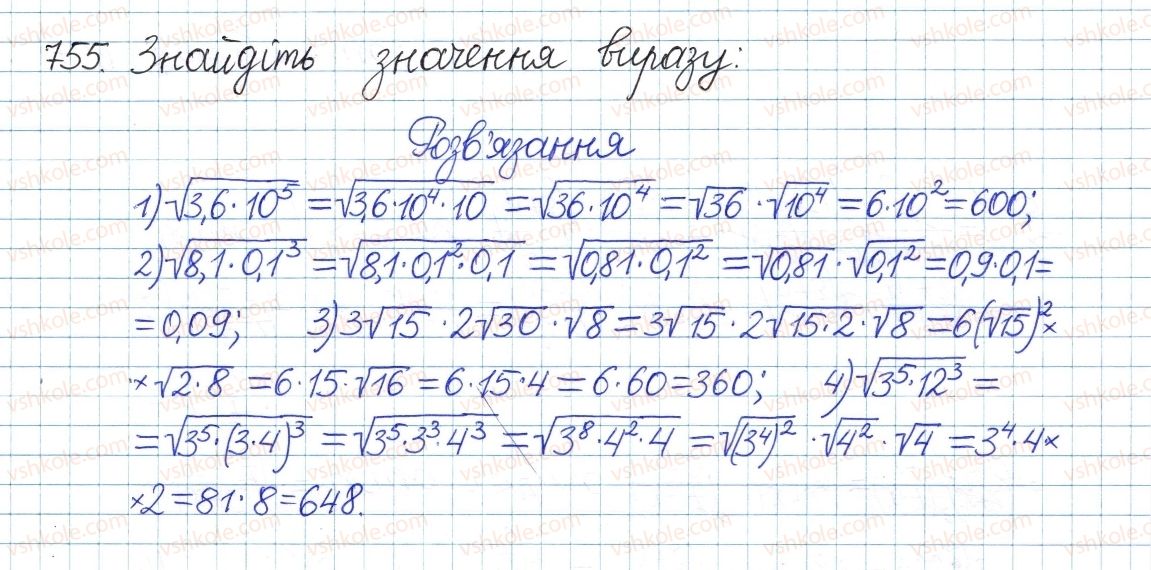 755. Знайдіть значення виразу:
Розв'язання
1) √(3,6·10⁵) = √(3,6·10⁴·10) = √(36·10⁴) = √36 · √(10⁴) = 6·10² = 600;
2) √(8,1·0,1³) = √(8,1·0,1²·0,1) = √(0,81·0,1²) = √0,81 · √(0,1²) = 0,9·0,1 =
= 0,09; 3) 3√15 · 2√30 · √8 = 3√15 · 2√(15·2) · √8 = 6(√15)² ×
× √(2·8) = 6·15·√16 = 6·15·4 = 6·60 = 360; 4) √(3⁵·12³) =
= √(3⁵·(3·4)³) = √(3⁵·3³·4³) = √(3⁸·4²·4) = √((3⁴)²) · √(4²) · √4 = 3⁴·4 ×
× 2 = 81·8 = 648.
vshkole.com